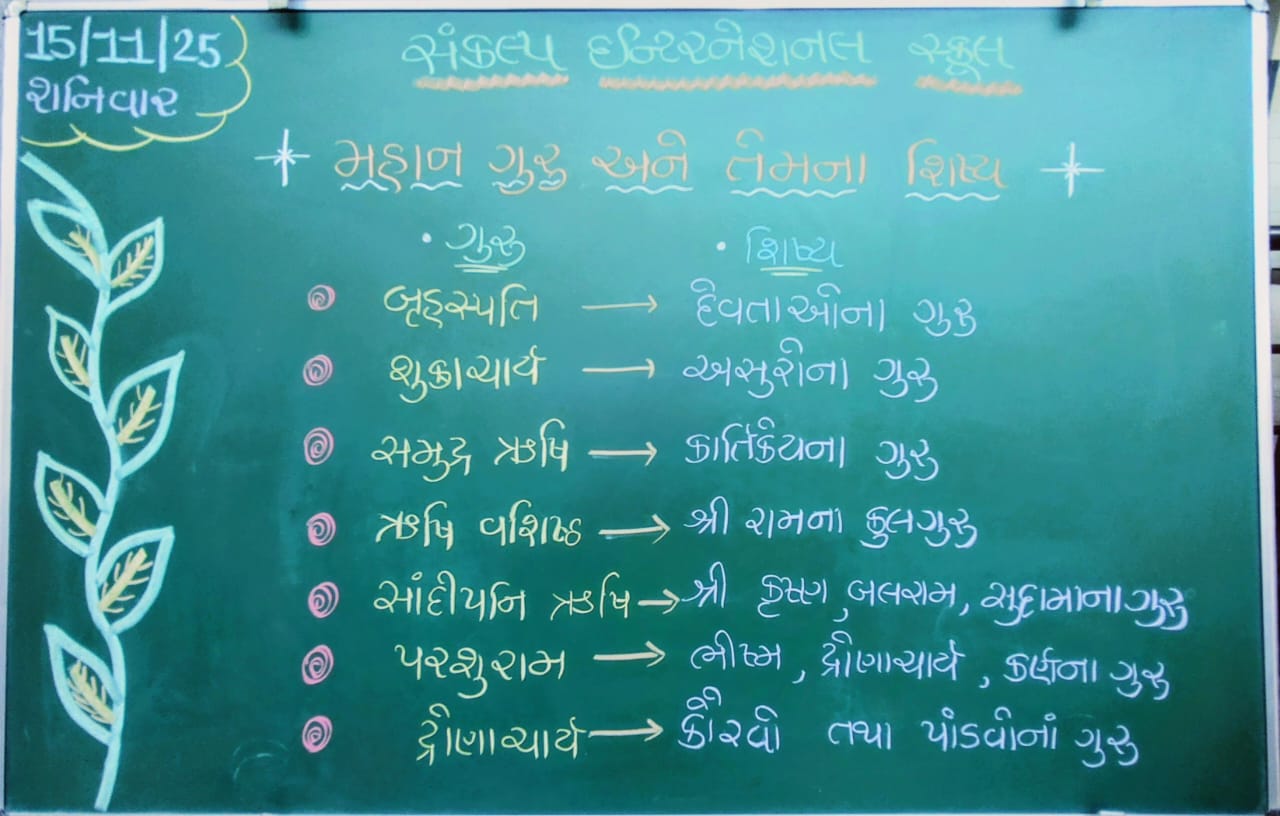 15/11/25
શનિવાર
સંકલ્પ ઈન્ટરનેશનલ સ્કૂલ
મહાન ગુરુ અને તેમના શિષ્ય
• ગુરુ • શિષ્ય
બૃહસ્પતિ → દેવતાઓના ગુરુ
શુક્રાચાર્ય → અસુરોના ગુરુ
સમુદ્ર ઋષિ → કાર્તિકેયના ગુરુ
ઋષિ વશિષ્ઠ → શ્રી રામના કુલગુરુ
સાંદીપનિ ઋષિ → શ્રી કૃષ્ણ, બલરામ, સુદામાના ગુરુ
પરશુરામ → ભીષ્મ, દ્રોણાચાર્ય, કર્ણના ગુરુ
દ્રોણાચાર્ય → કૌરવો તથા પાંડવોનાં ગુરુ